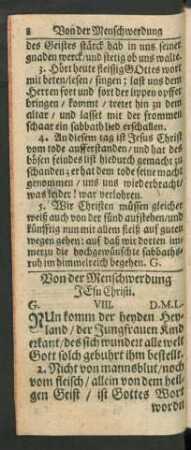 8 Von der Menschwerdung
des Geistes stärck hab in uns seiner
gnaden werck/ und stetig ob uns walte.
3. Hört heute fleissig GOttes wort
mit beten/lesen/ singen; last uns dem
Herren fort und fort der lippen opffer
bringen/ kommt/ tretet hin zu dem
altar/ und lasset mit der frommen
schaar ein sabbath lied erschallen.
4. An diesem tag ist Jesus Christ
vom tode aufferstanden/ und hat des
bösen feindes list hiedurch gemacht zu
schanden; er hat dem tode seine macht
genommen/ uns uns wiederbracht/
was leyder! war verlohren.
5. Wir Christen müssen gleicher
weiß auch von der sünd aufstehen/und
künfftig nun mit allem fleiß auf guten
wegen gehen: auf daß wir dorten im=
merzu die hochgewünschte sabbaths=
ruh im himmelreich begehen. G.
Von der Menschwerdung
JEsu Christi.
G. VIII. D.M.L.
NUn komm der heyden Hey=
land/ der Jungfrauen Kind
erkant/ des sich wundert alle welt
Gott solch geburht ihm bestellt.
2. Nicht von mannsblut/ noch
vom fleisch/ allein von dem heili=
gen Geist/ ist Gottes Wort
worden